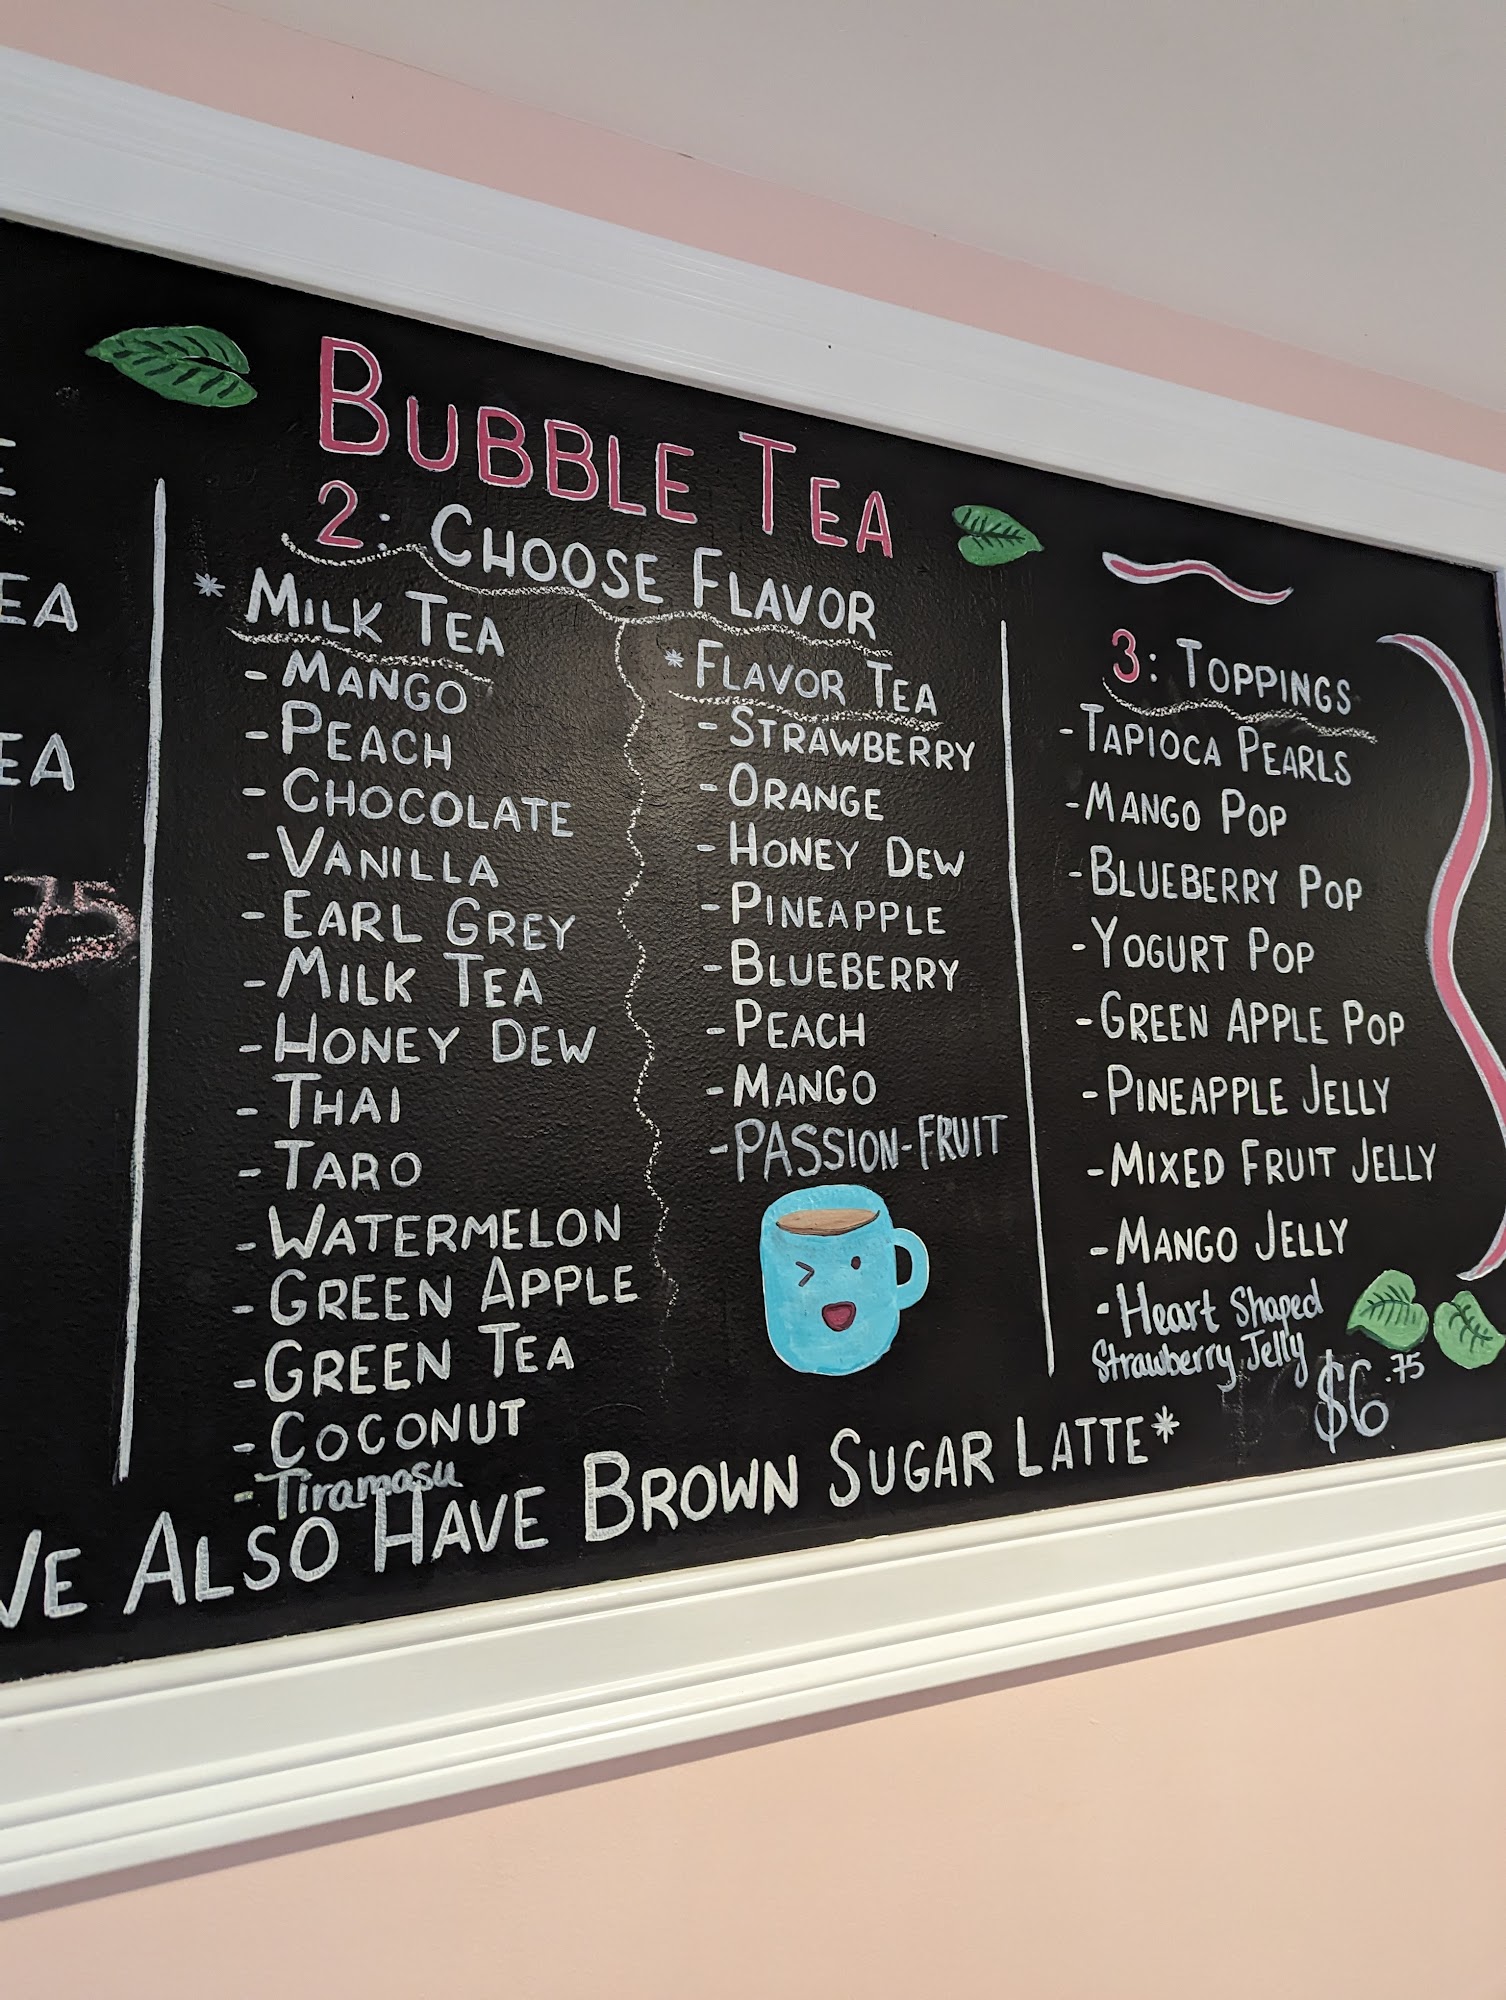 EA
EA
75
BUBBLE TEA
2: CHOOSE FLAVOR
* MILK TEA
- MANGO
- PEACH
- CHOCOLATE
- VANILLA
- EARL GREY
- MILK TEA
- HONEY DEW
- THAI
- TARO
- WATERMELON
- GREEN APPLE
- GREEN TEA
- COCONUT
- Tiramasu
* FLAVOR TEA
- STRAWBERRY
- ORANGE
- HONEY DEW
- PINEAPPLE
- BLUEBERRY
- PEACH
- MANGO
- PASSION-FRUIT
3: TOPPINGS
- TAPIOCA PEARLS
- MANGO POP
- BLUEBERRY POP
- YOGURT POP
- GREEN APPLE POP
- PINEAPPLE JELLY
- MIXED FRUIT JELLY
- MANGO JELLY
- Heart Shaped
Strawberry Jelly
$6.75
WE ALSO HAVE BROWN SUGAR LATTE*